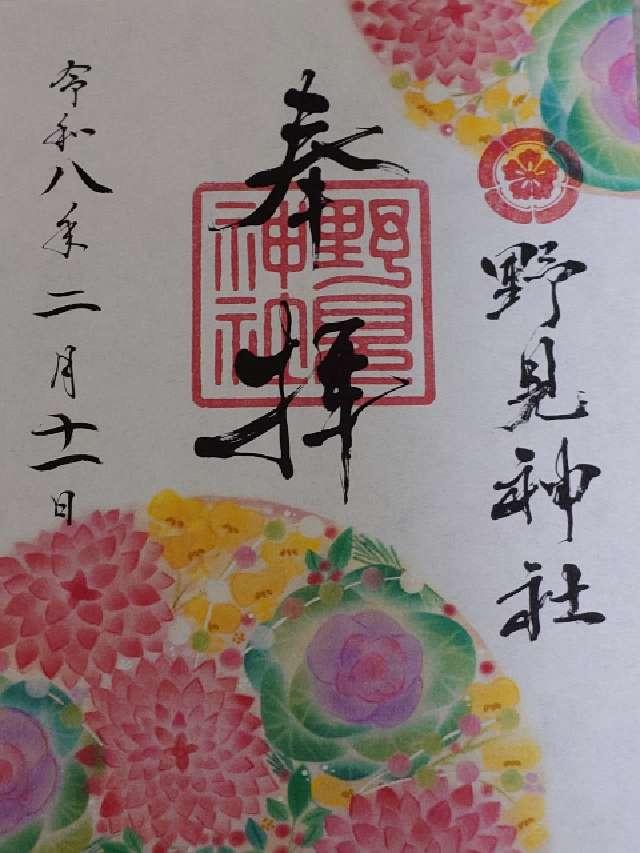 野見神社
奉拝
野見神社
令和八年二月十一日